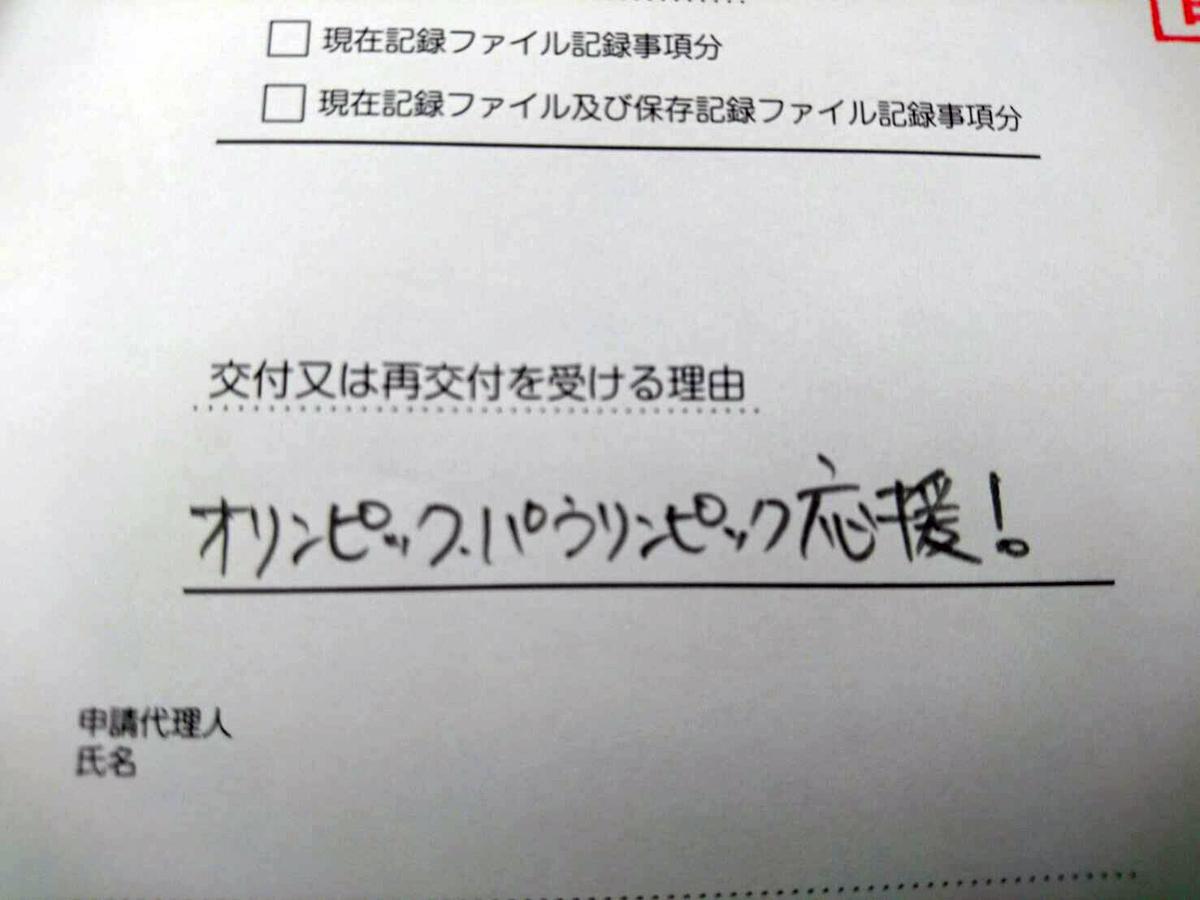 □ 現在記録ファイル記録事項分
□ 現在記録ファイル及び保存記録ファイル記録事項分
交付又は再交付を受ける理由
オリンピック.パラリンピック応援!
申請代理人
氏名